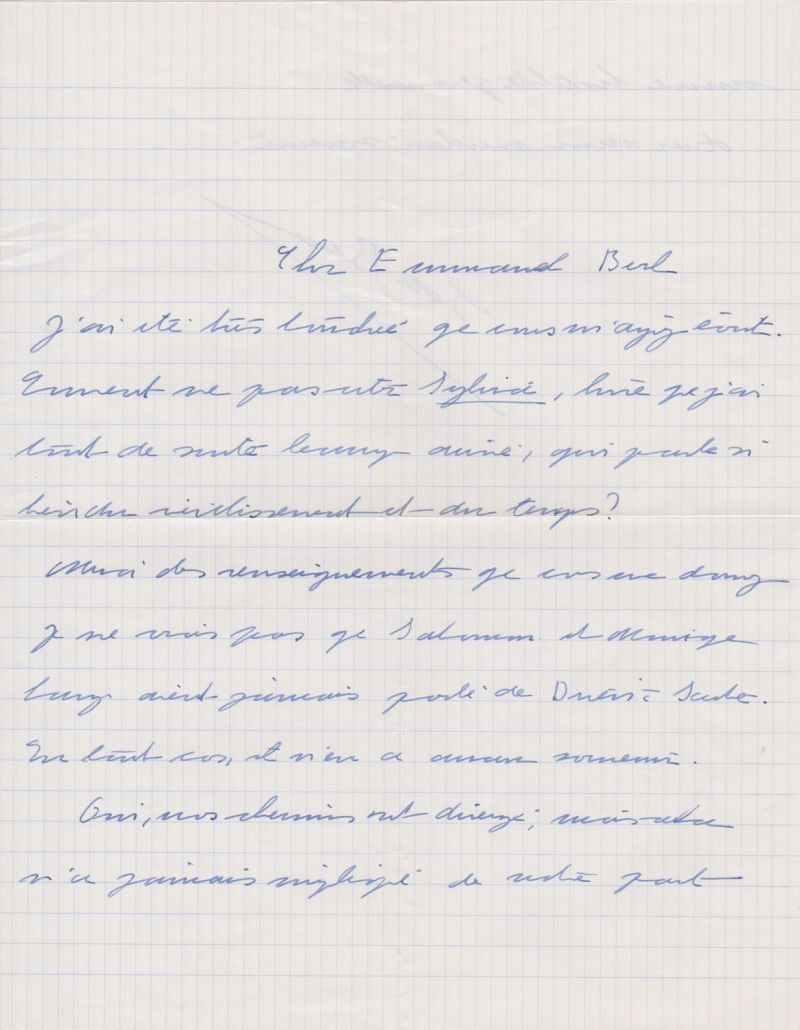 Cher Emmanuel Berl
J'ai été très touché que vous m'ayez écrit.
Comment ne pas citer Sylvia, livre que j'ai
tout de suite beaucoup aimé, qui parle si
bien du vieillissement et du temps?
Merci des renseignements que vous me donnez
Je ne crois pas que et
aient jamais parlé de Drieu à Sartre.
En tout cas, il n'en a aucun souvenir.
Oui, nos chemins ont divergé; mais cela
n'a jamais impliqué de notre part